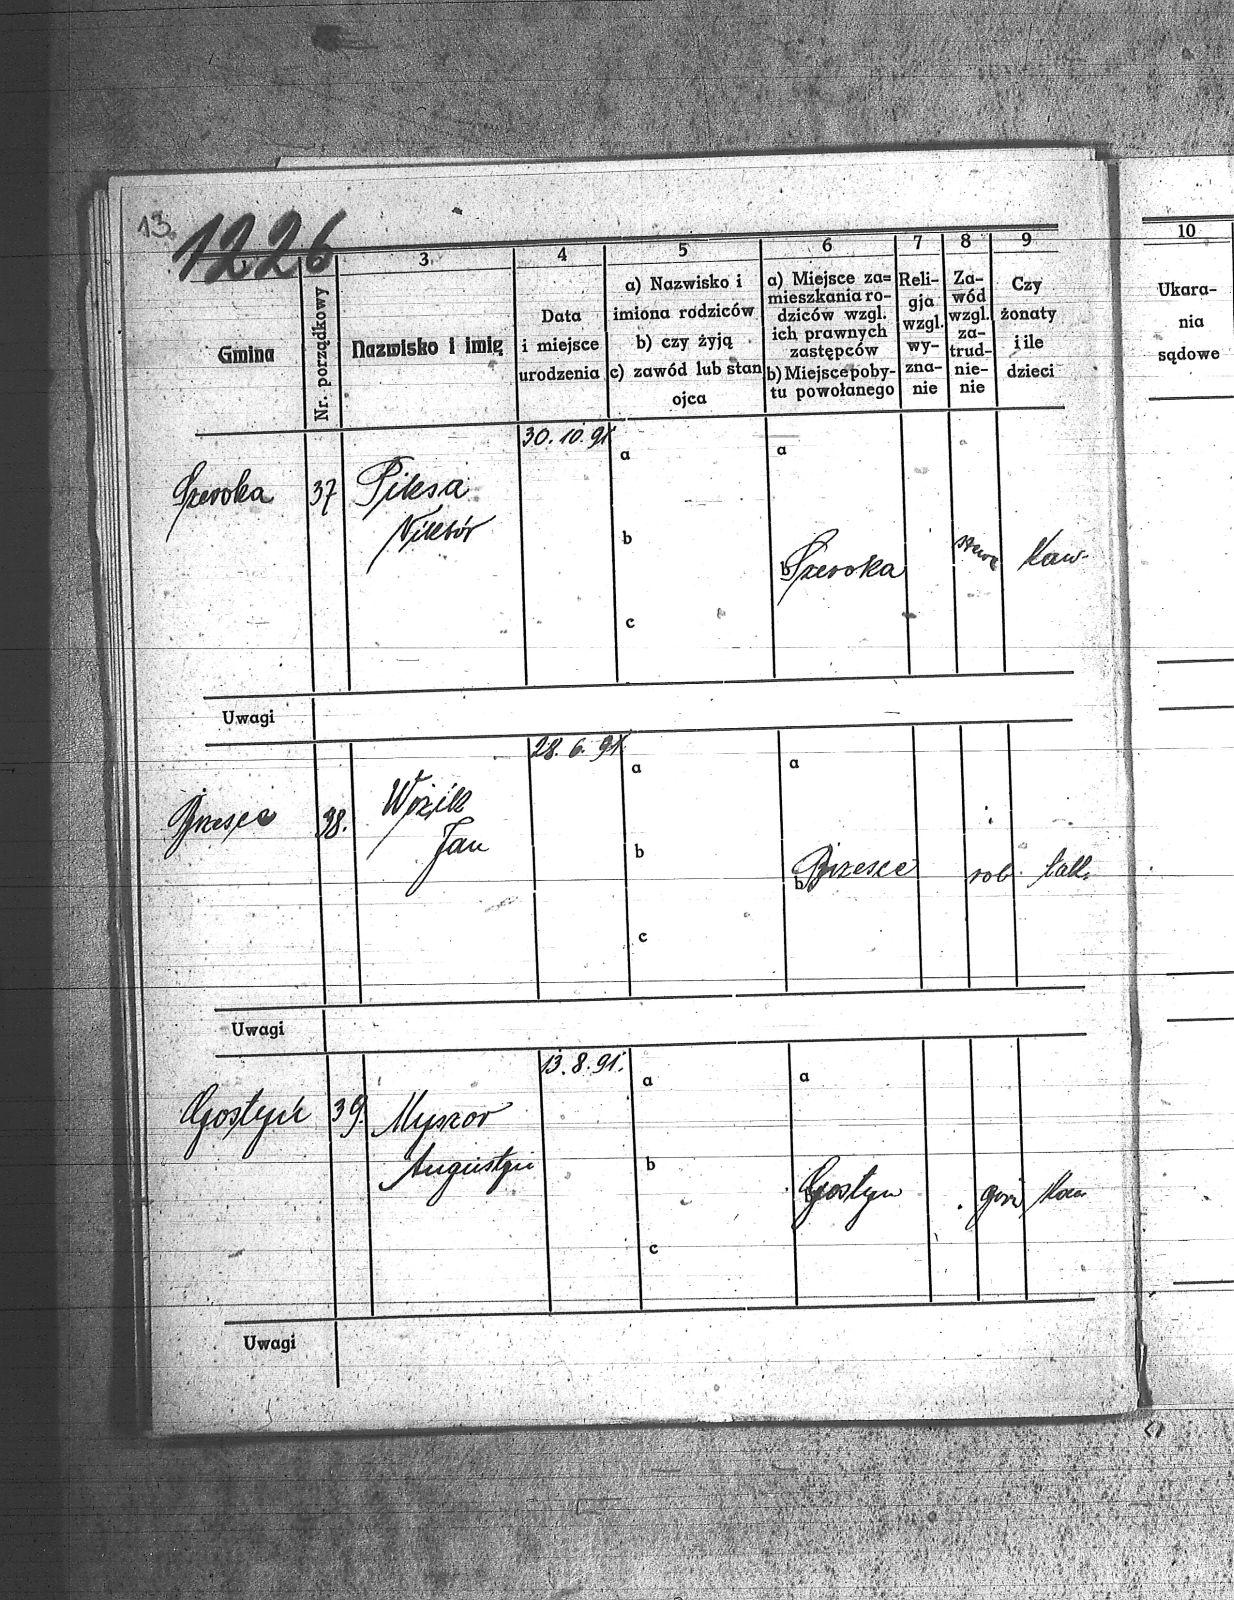 13.
1226
3 4 5 6 7 8 9 10
Gmina
Nr. porządkowy
Nazwisko i imię
Data
i miejsce
urodzenia
a) Nazwisko i
imiona rodziców
b) czy żyją
c) zawód lub stan
ojca
a) Miejsce za=
mieszkania ro-
dziców wzgl.
ich prawnych
zastępców
b) Miejsce poby-
tu powołanego
Reli-
gja
wzgl.
wy-
zna-
nie
Za-
wód
wzgl.
za-
trud-
nie-
nie
Czy
żonaty
i ile
dzieci
Ukara-
nia
sądowe
30. 10. 91
a a
Szeroka 37 Piksa
Wiktór
b
b Szeroka Kaw.
c
Uwagi
28. 6. 91
a a
Brzesce 38. Woźik
Jan
b
b Brzesce rob.
c
Uwagi
13. 8. 91.
a a
Gostyń 39. Myszor
Augustyn
b
b Gostyn gór Kaw
c
Uwagi